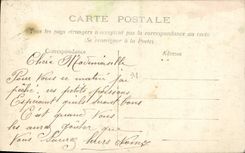 CARTE POSTALE
Tous les pays étrangers n'acceptent pas la correspondance au recto
(Se renseigner à la Poste)
Correspondance Adresse
Chère Mademoiselle
Pour vous ce matin j'ai
pêché, ces petits poissons
Espérant qu'ils sont bons
C'est quand vous
les aurez goûter que
Vous leurs